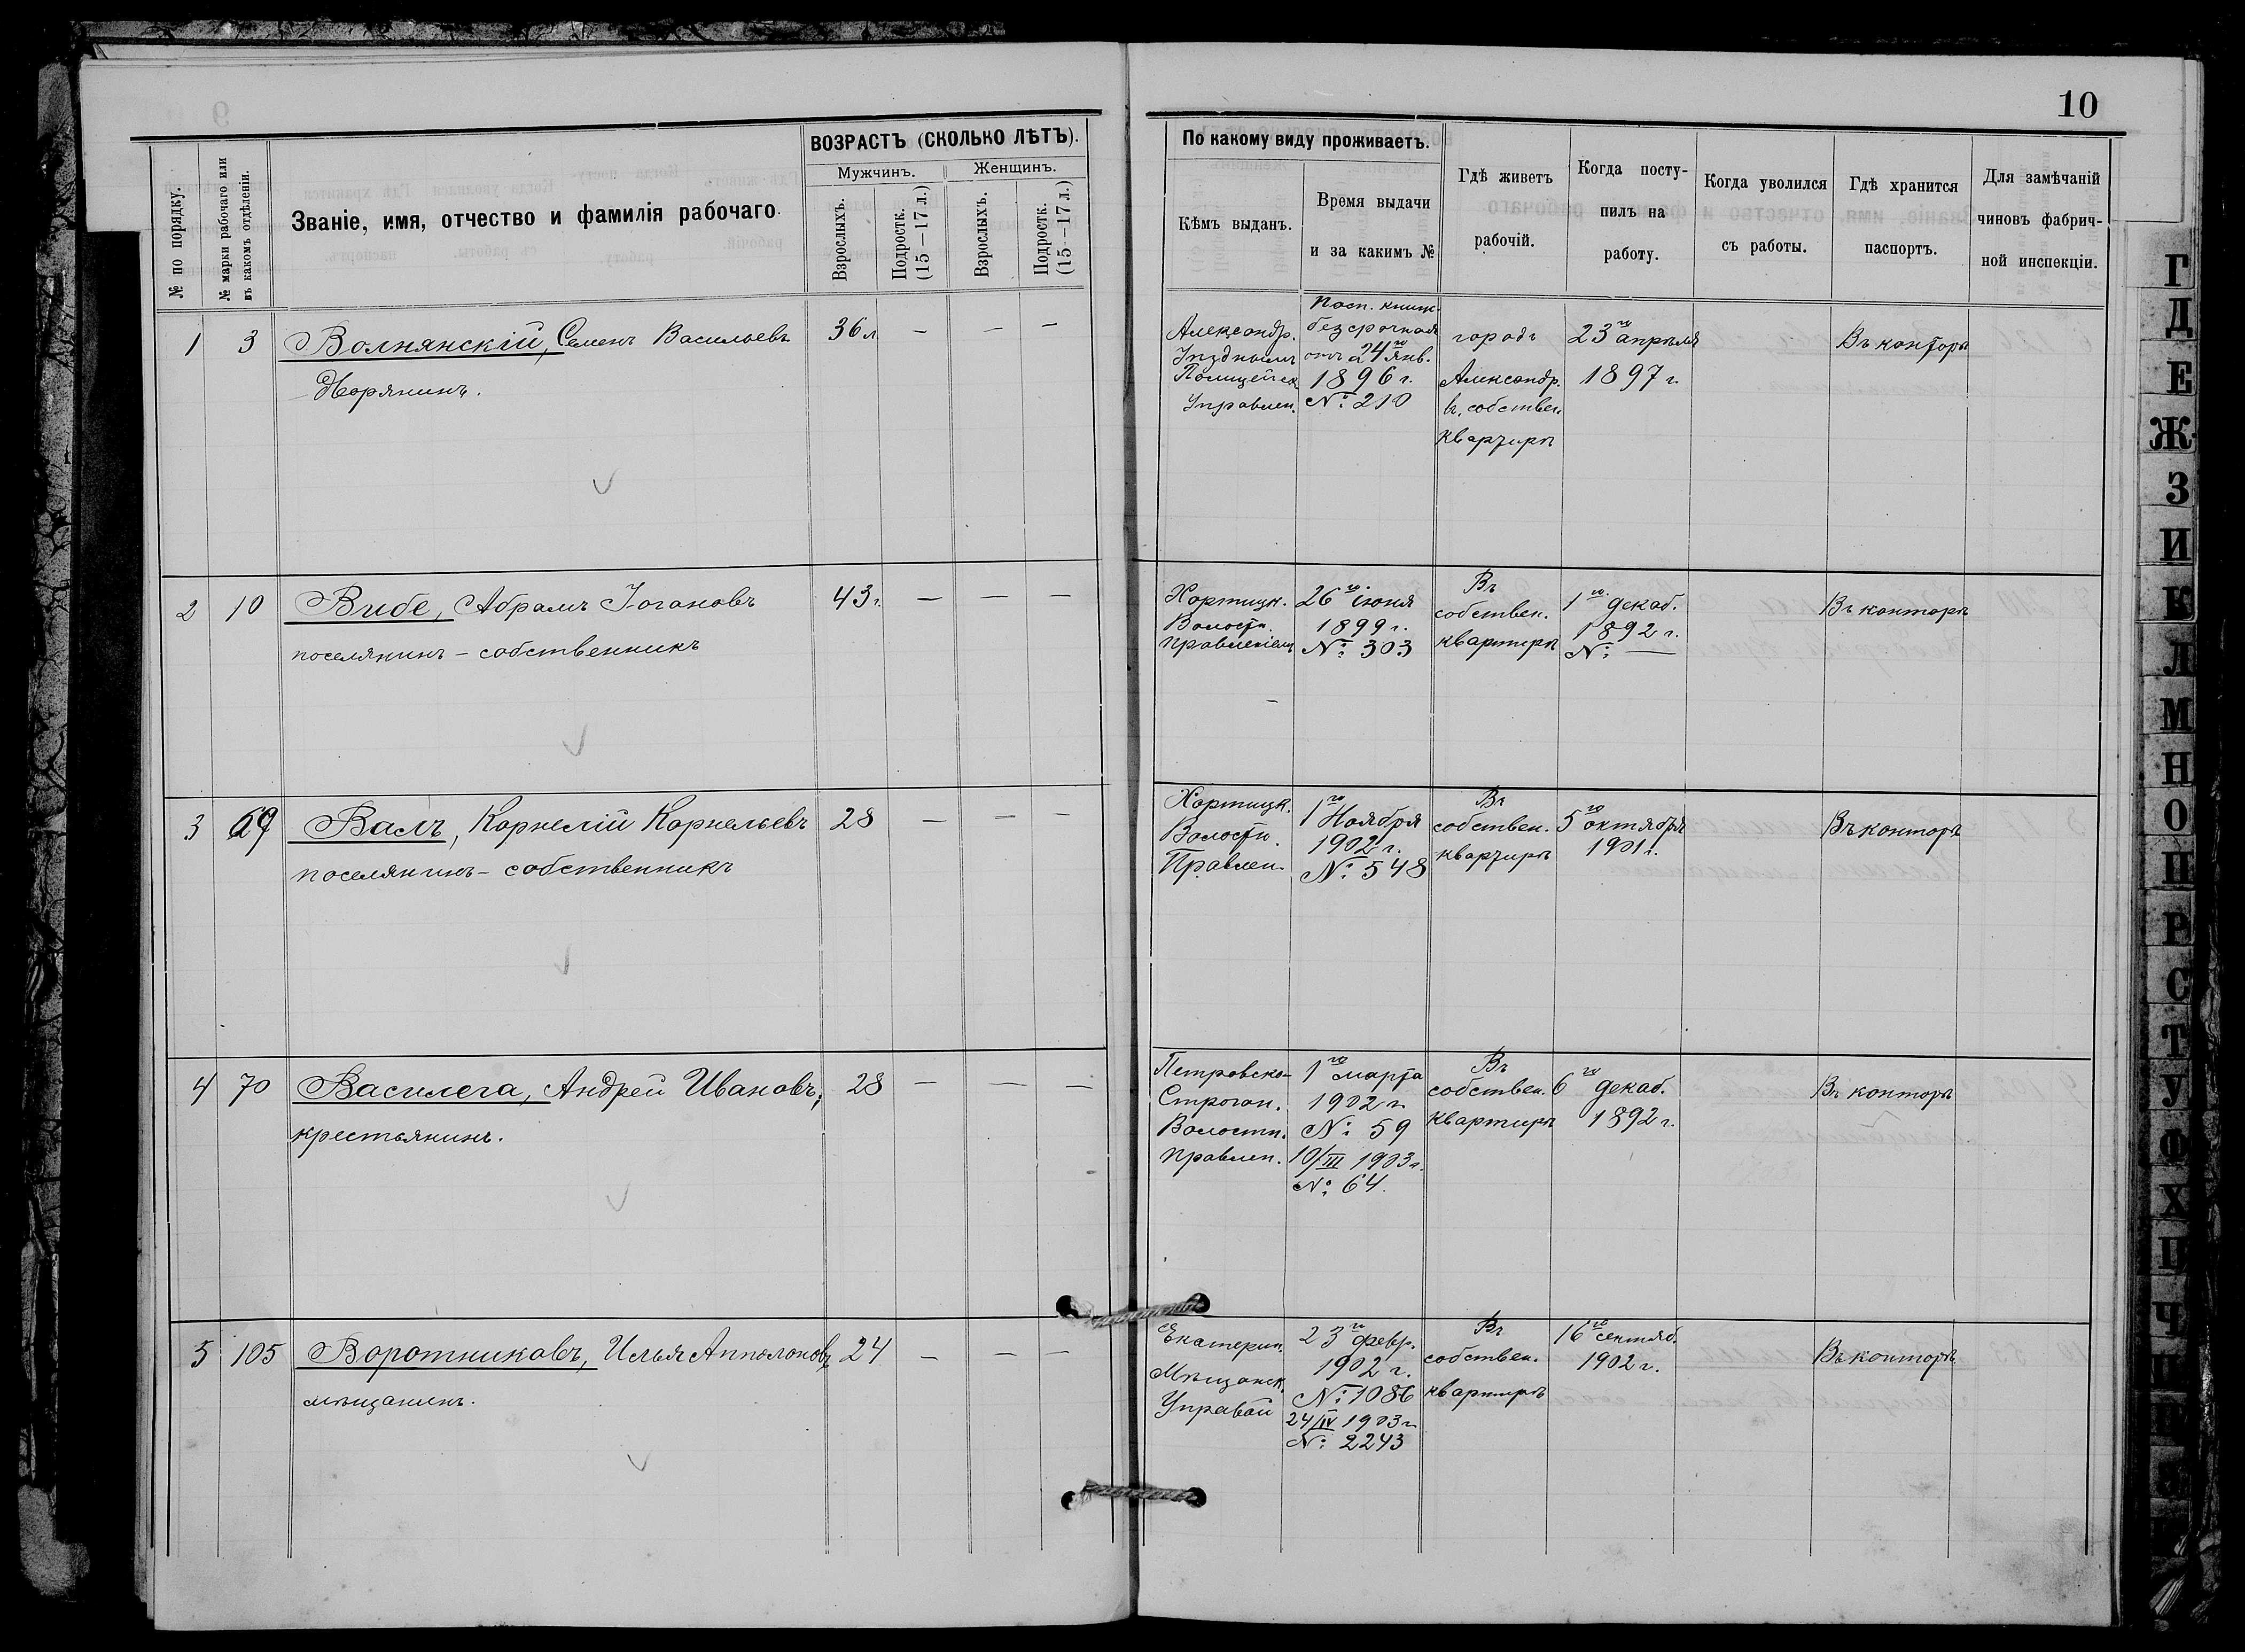 10
№ по порядку.
№ марки рабочаго или
въ какомъ отдѣленіи.
Званіе, имя, отчество и фамилія рабочаго.
ВОЗРАСТЪ (СКОЛЬКО ЛѢТЪ).
Мужчинъ.
Женщинъ.
Взрослыхъ.
Подростк.
(15—17 л.)
Взрослыхъ.
Подростк.
(15—17 л.)
По какому виду проживаетъ.
Кѣмъ выданъ.
Время выдачи
и за какимъ №
Гдѣ живетъ
рабочій.
Когда посту-
пилъ на
работу.
Когда уволился
съ работы.
Гдѣ хранится
паспортъ.
Для замѣчаній
чиновъ фабрич-
ной инспекціи.
1
3
Волнянскій, Семенъ Васильевъ
Дворянинъ.
36 л.
—
—
—
Александр.
Уѣзднымъ
Полицейск.
Управлен.
Пасп. книж.
безсрочная
отъ 24го янв.
1896 г.
№ 210
городъ
Александр.
въ собствен.
квартирѣ
23го апрѣля
1897 г.
Въ конторѣ
2
10
Вибе, Абрамъ Іогановъ
поселянинъ – собственникъ
43 г.
—
—
—
Хортицк.
Волостн.
правленіемъ
26го іюня
1899 г.
№ 303
Въ
собствен.
квартирѣ
1го декаб.
1892 г.
№ —
Въ конторѣ
3
69
Валъ, Корнелій Корнельевъ
поселянинъ – собственникъ
28
—
—
—
Хортицк.
Волостн.
Правлен.
1го Ноября
1902 г.
№ 548
Въ
собствен.
квартирѣ
5го октября
1901 г.
Въ конторѣ
4
70
Василега, Андрей Ивановъ,
крестьянинъ.
28
—
—
—
Петровско-
Строган.
Волостн.
правлен.
1го марта
1902 г.
№ 59
10/III 1903 г.
№ 64.
Въ
собствен.
квартирѣ
6го декаб.
1892 г.
Въ конторѣ
5
105
Воротниковъ, Илья Апполоновъ
мѣщанинъ.
24
—
—
—
Екатерин.
Мѣщанск.
Управой
23го февр.
1902 г.
№ 1086
24/IV 1903 г.
№ 2243
Въ
собствен.
квартирѣ
16го сентяб.
1902 г.
Въ конторѣ
Г
Д
Е
Ж
З
И
К
Л
М
Н
О
П
Р
С
Т
У
Ф
Х
Ц
Ч